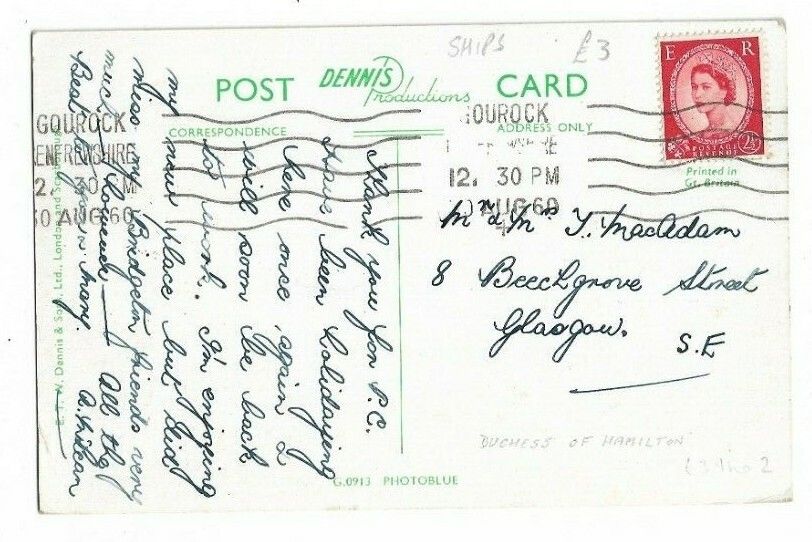 SHIPS £3
POST DENNIS Productions CARD
E R
POSTAGE REVENUE 2½
Printed in
Gt. Britain
CORRESPONDENCE
ADDRESS ONLY
GOUROCK
RENFREWSHIRE
12. 30 PM
30 AUG 60
GOUROCK
12. 30 PM
AUG 60
Thank you for P.C.
Have been holidaying
here once again &
will soon be back
to work. I'm enjoying
my new place but did
miss my Bridgeton friends very
much however — All the
Best
Mary.
Mr & Mrs T. MacAdam
8 Beechgrove Street
Glasgow.
S.E
E. T. W. Dennis & Sons, Ltd., London and
DUCHESS OF HAMILTON
G.0913 PHOTOBLUE